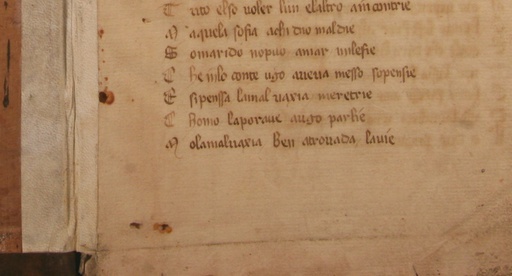 T uto elso voler lun elaltro aincontrie
M aquela sofia achi dno maldie
S omarido nopuo amar nilefie
C he nilo conte ugo aveva messo sopensie
E sipenssa lamalvaxia meretrie
C homo laporave augo parlie
M olamalvaxia ben atrovada lavie